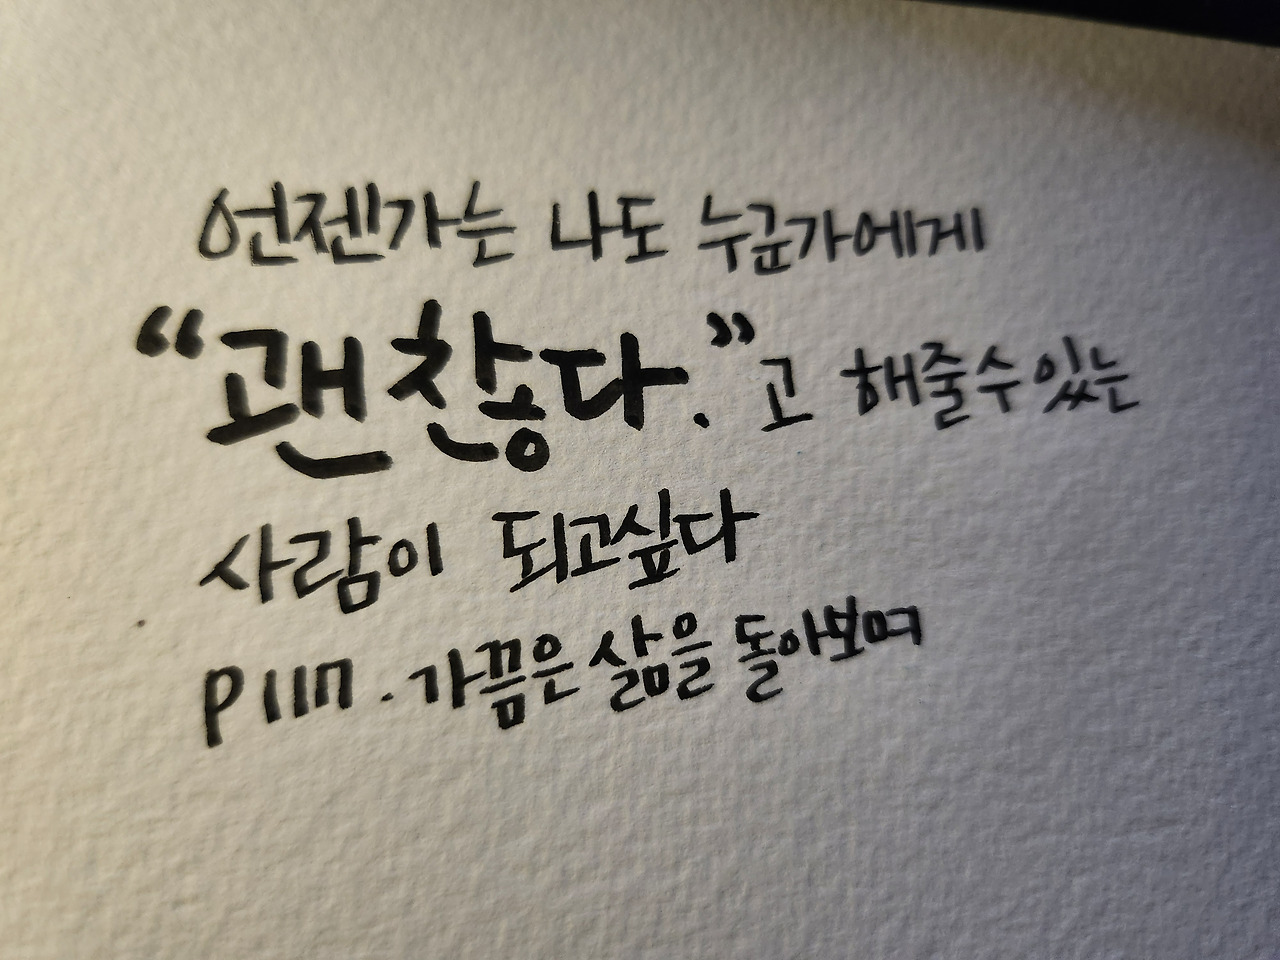 언젠가는 나도 누군가에게
“괜찮다.”고 해줄수있는
사람이 되고싶다
P117 . 가끔은 삶을 돌아보며